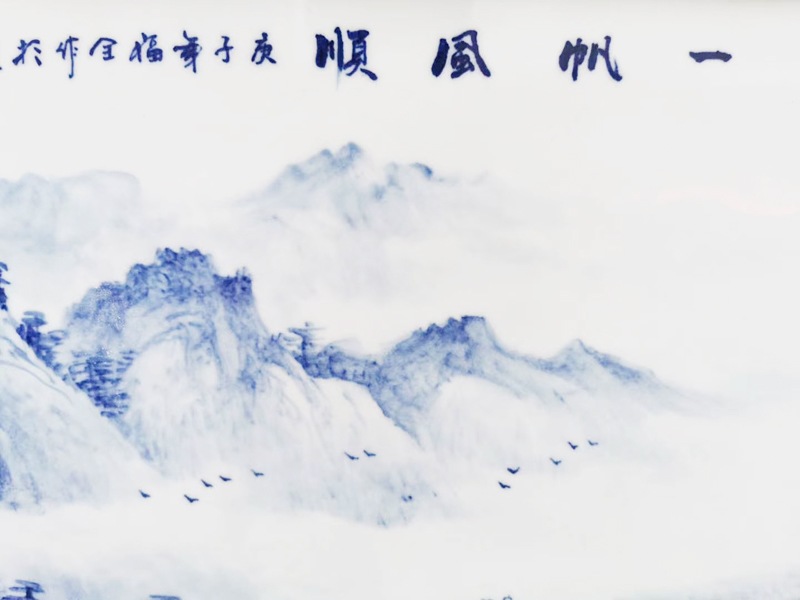 一帆風順 庚子年福全作於